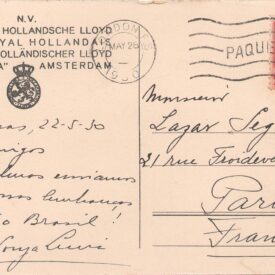 N.V.
HOLLANDSCHE LLOYD
YAL HOLLANDAIS
OLLÄNDISCHER LLOYD
A" AMSTERDAM
MAY 26
1930
PAQUE
as, 22-5-30
migos
enviamos
Lembranças
ão Brasil!
Monsieur
Lazar Seg
21 rue Froideva
Pari
Fran